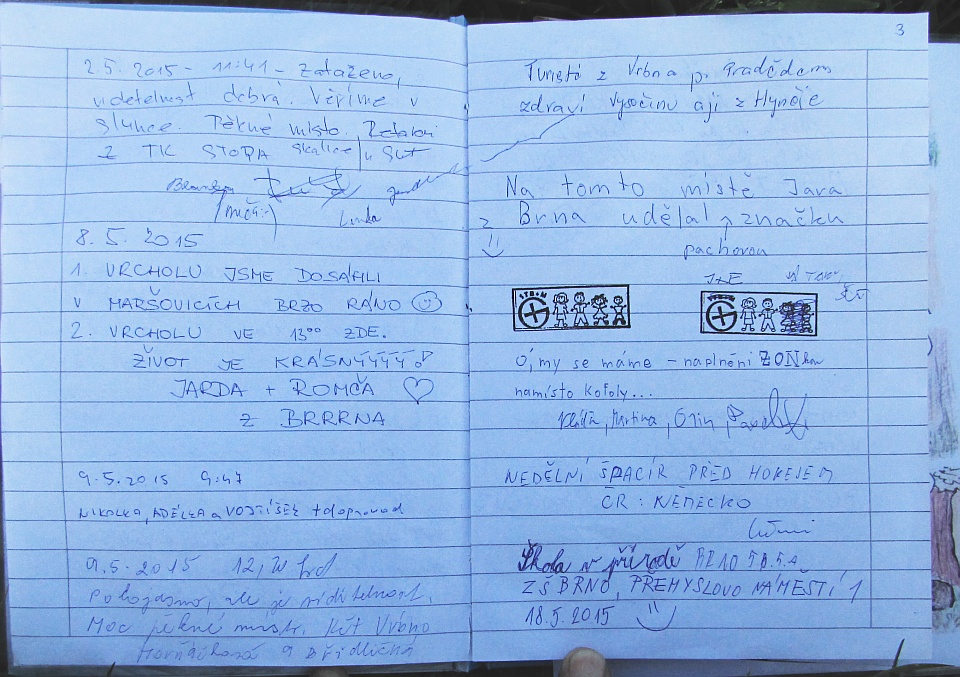 2.5. 2015 - 11:41 - Zataženo,
viditelnost dobrá. Věříme v
slunce. Pěkné místo.
z TK STOPA Skalice
Linda
8. 5. 2015
1. VRCHOLU JSME DOSÁHLI
V MARŠOVICÍCH BRZO RÁNO
2. VRCHOLU VE 13⁰⁰ ZDE.
ŽIVOT JE KRÁSNÝÝÝÝ!
JARDA + ROMČA
Z BRRRNA
9.5.2015 9:47
NIKOLKA, ADÉLKA a VOJTÍŠEK + doprovod
9.5.2015 12,20 hod
Moc pěkné místo. Vrbno
3
Turisté z Vrbna p. Pradědem
zdraví Vysočinu aji z Hynčje
Na tomto místě Jara
z Brna udělal značku
pachovou
J+E
STROM
Ó, my se máme - naplněni ŽONkou
namísto Kofoly...
Martina,
NEDĚLNÍ ŠPACÍR PŘED HOKEJEM
ČR : NĚMECKO
Škola v přírodě
ZŠ BRNO, PŘEMYSLOVO NÁMĚSTÍ 1
18.5.2015